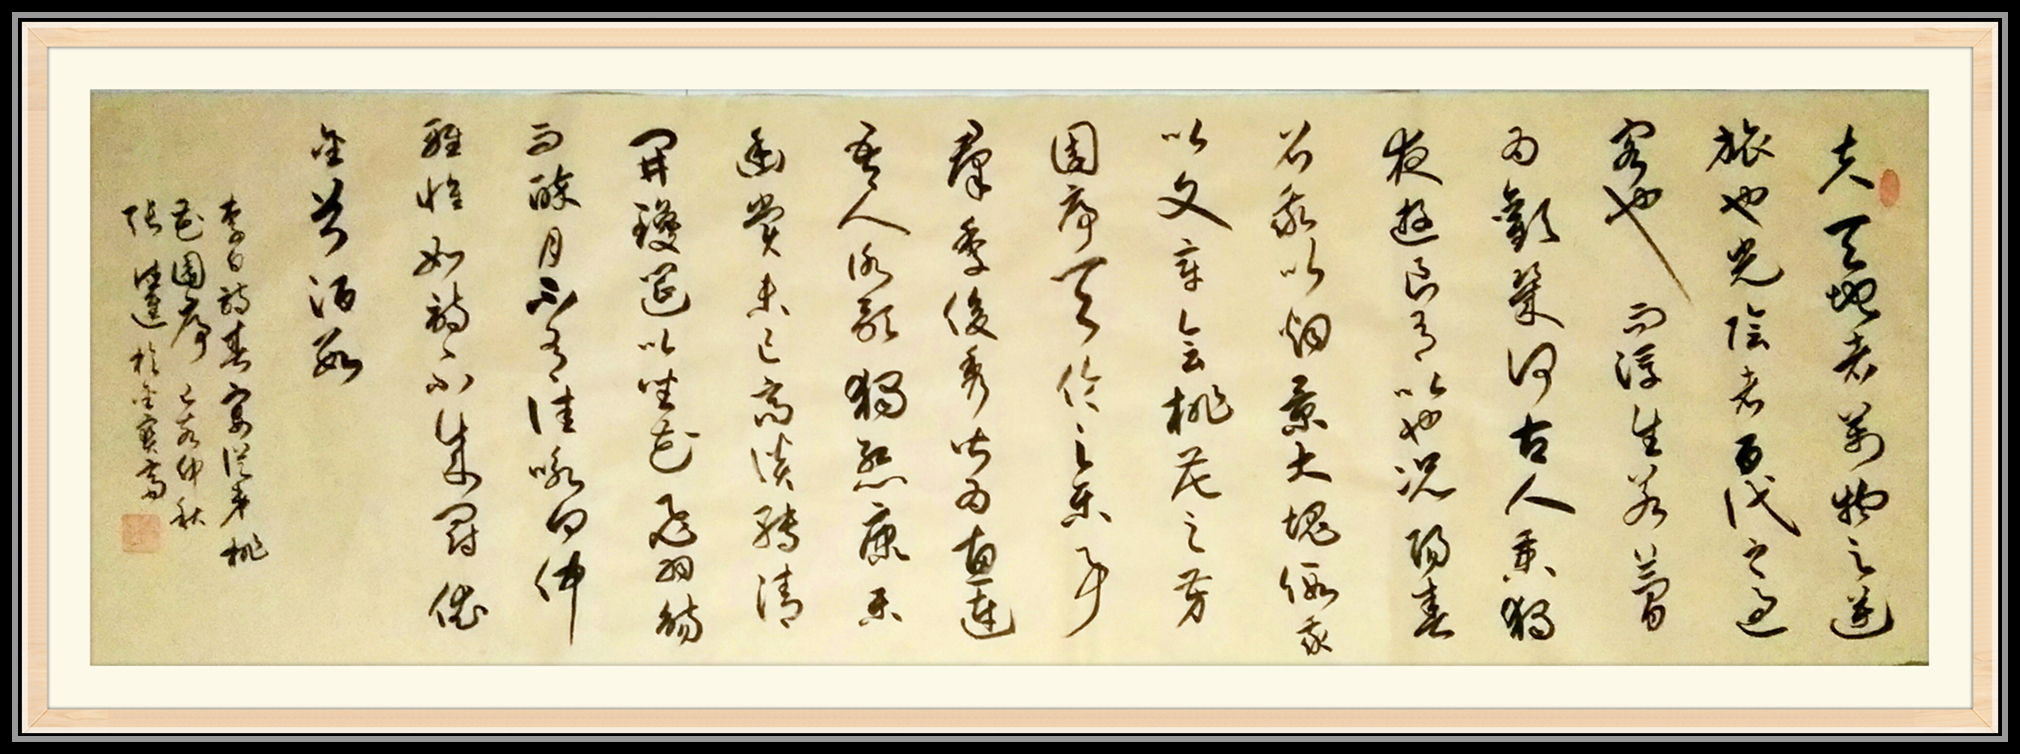 夫天地者萬物之逆
旅也光陰者百代之過
客也而浮生若夢
為歡幾何古人秉燭
夜遊良有以也況陽春
召我以烟景大塊假我
以文章會桃花之芳
園序天倫之樂事
群季俊秀皆為惠連
吾人詠歌獨慙康樂
幽賞未已高談轉清
開瓊筵以坐花飛羽觴
而醉月不有佳咏何伸
雅懷如詩不成罰依
金谷酒數
李白詩春宴從弟桃
花園序 己亥仲秋
張 於 齋